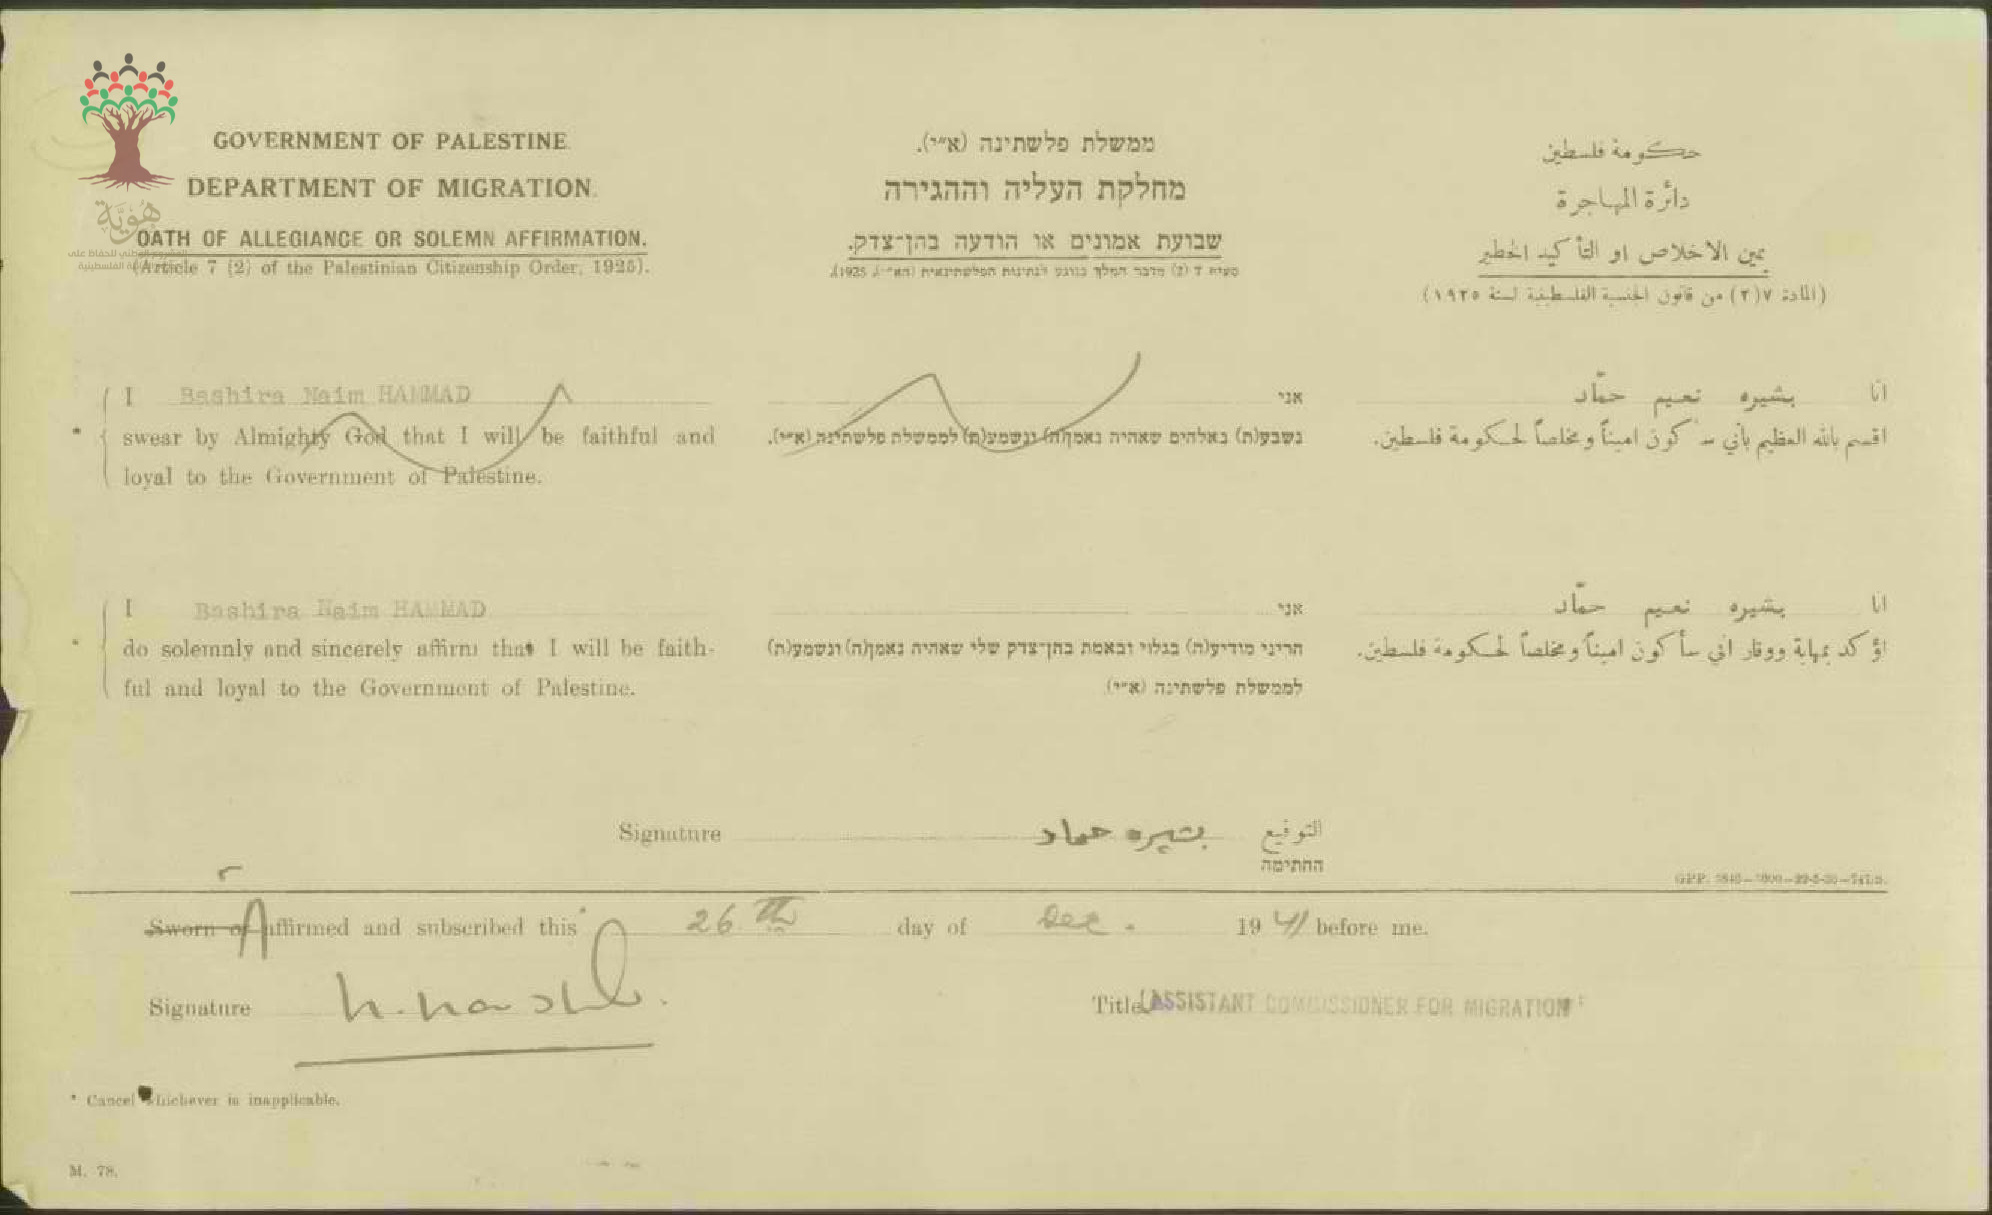 GOVERNMENT OF PALESTINE.
DEPARTMENT OF MIGRATION.
OATH OF ALLEGIANCE OR SOLEMN AFFIRMATION.
(Article 7 (2) of the Palestinian Citizenship Order, 1925).
ממשלת פלשתינה (א״י).
מחלקת העליה וההגירה
שבועת אמונים או הודעה בהן־צדק.
חكومة فلسطين
دائرة المهاجرة
يمين الاخلاص او التأكيد الخطير
(المادة ٧(٢) من قانون الجنسية الفلسطينية لسنة ١٩٢٥)
هُويَّة
* I Bashira Naim HAMMAD
swear by Almighty God that I will be faithful and
loyal to the Government of Palestine.
אני
נשבע(ת) באלהים שאהיה נאמן(ה) ונשמע(ת) לממשלת פלשתינה (א״י).
انا بشيره نعيم حمّاد
اقسم بالله العظيم بأني س كون اميناً ومخلصاً لحكومة فلسطين.
* I Bashira Naim HAMMAD
do solemnly and sincerely affirm that I will be faith-
ful and loyal to the Government of Palestine.
אני
הריני מודיע(ה) בגלוי ובאמת בהן־צדק שלי שאהיה נאמן(ה) ונשמע(ת)
לממשלת פלשתינה (א״י)
انا بشيره نعيم حمّاد
اؤكد بمهابة ووقار اني سأكون اميناً ومخلصاً لحكومة فلسطين.
Signature بشيره حماد التوقيع
החתימה
Sworn or Affirmed and subscribed this 26th day of Dec. 1941 before me.
Signature
Title ASSISTANT COMMISSIONER FOR MIGRATION
* Cancel whichever is inapplicable.
M. 78.